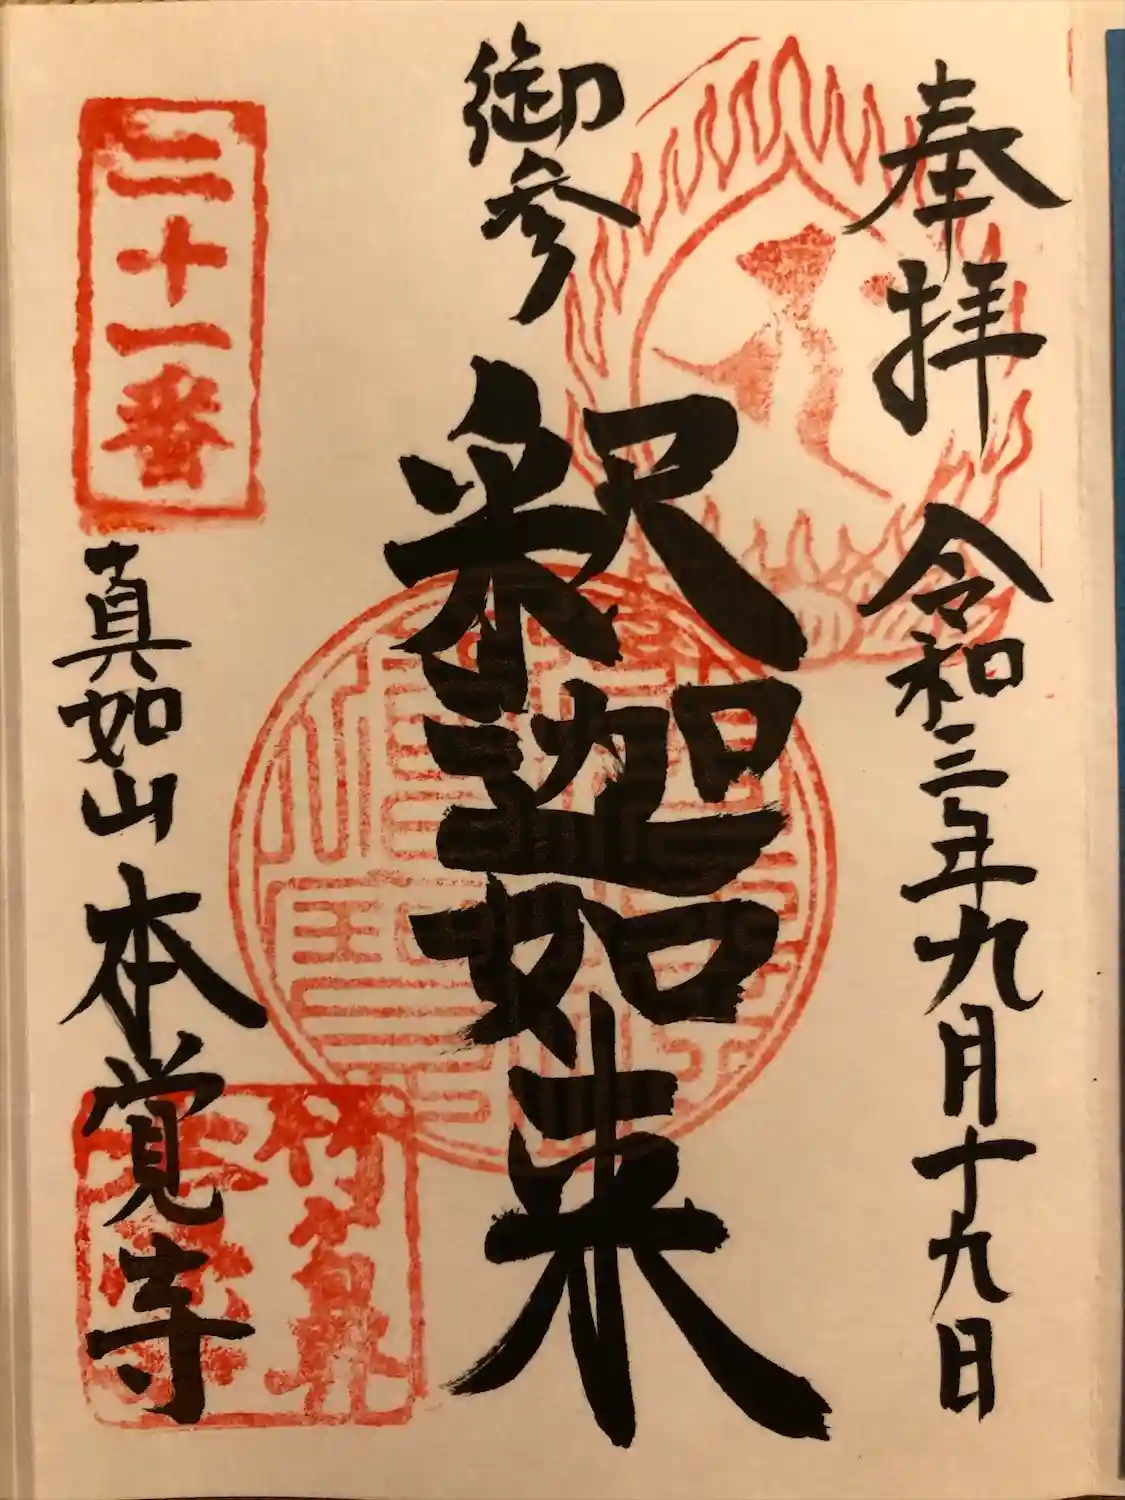 奉拝 令和三年九月十九日
御参
釈迦如来
二十一番
真如山 本覚寺